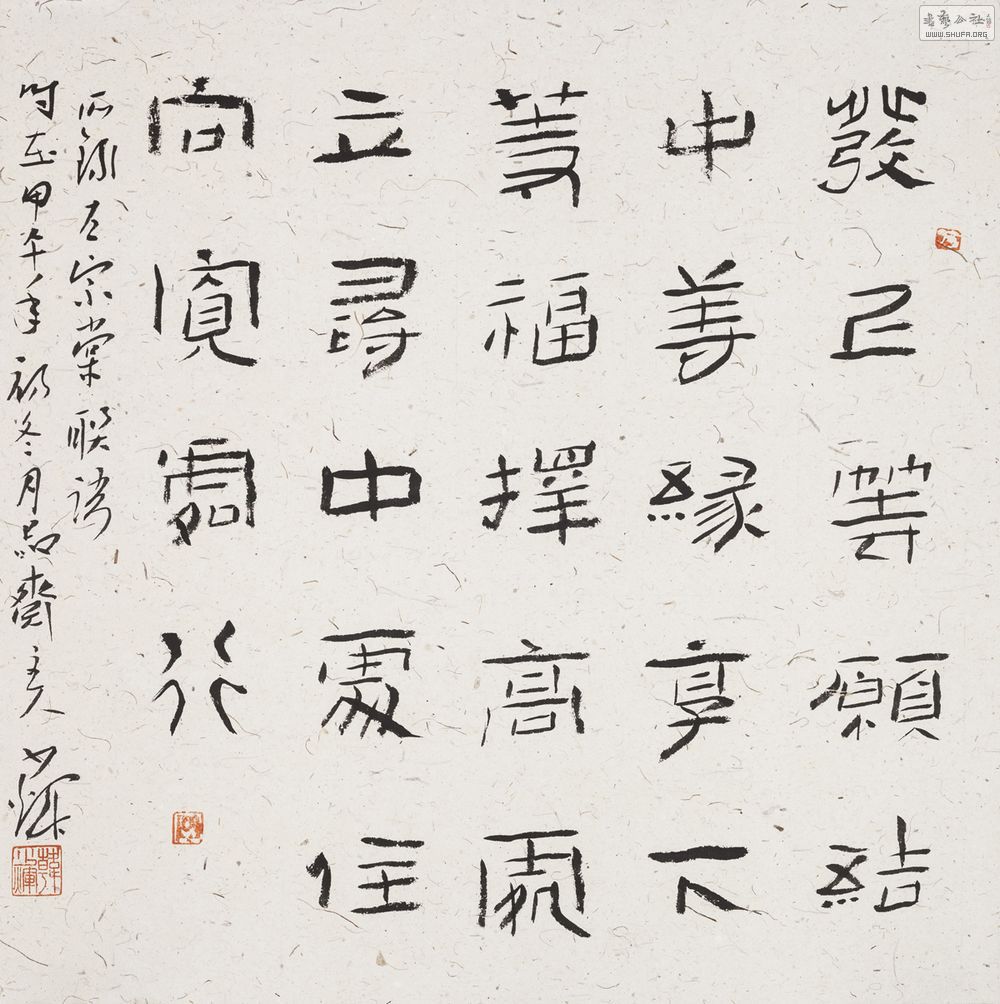 發上等願結
中等緣享下
等福擇高處
立尋中處住
向寬處行
錄左宗棠聯語
時在甲午年初冬月品齋主人少輝
書藝公社
WWW.SHUFA.ORG